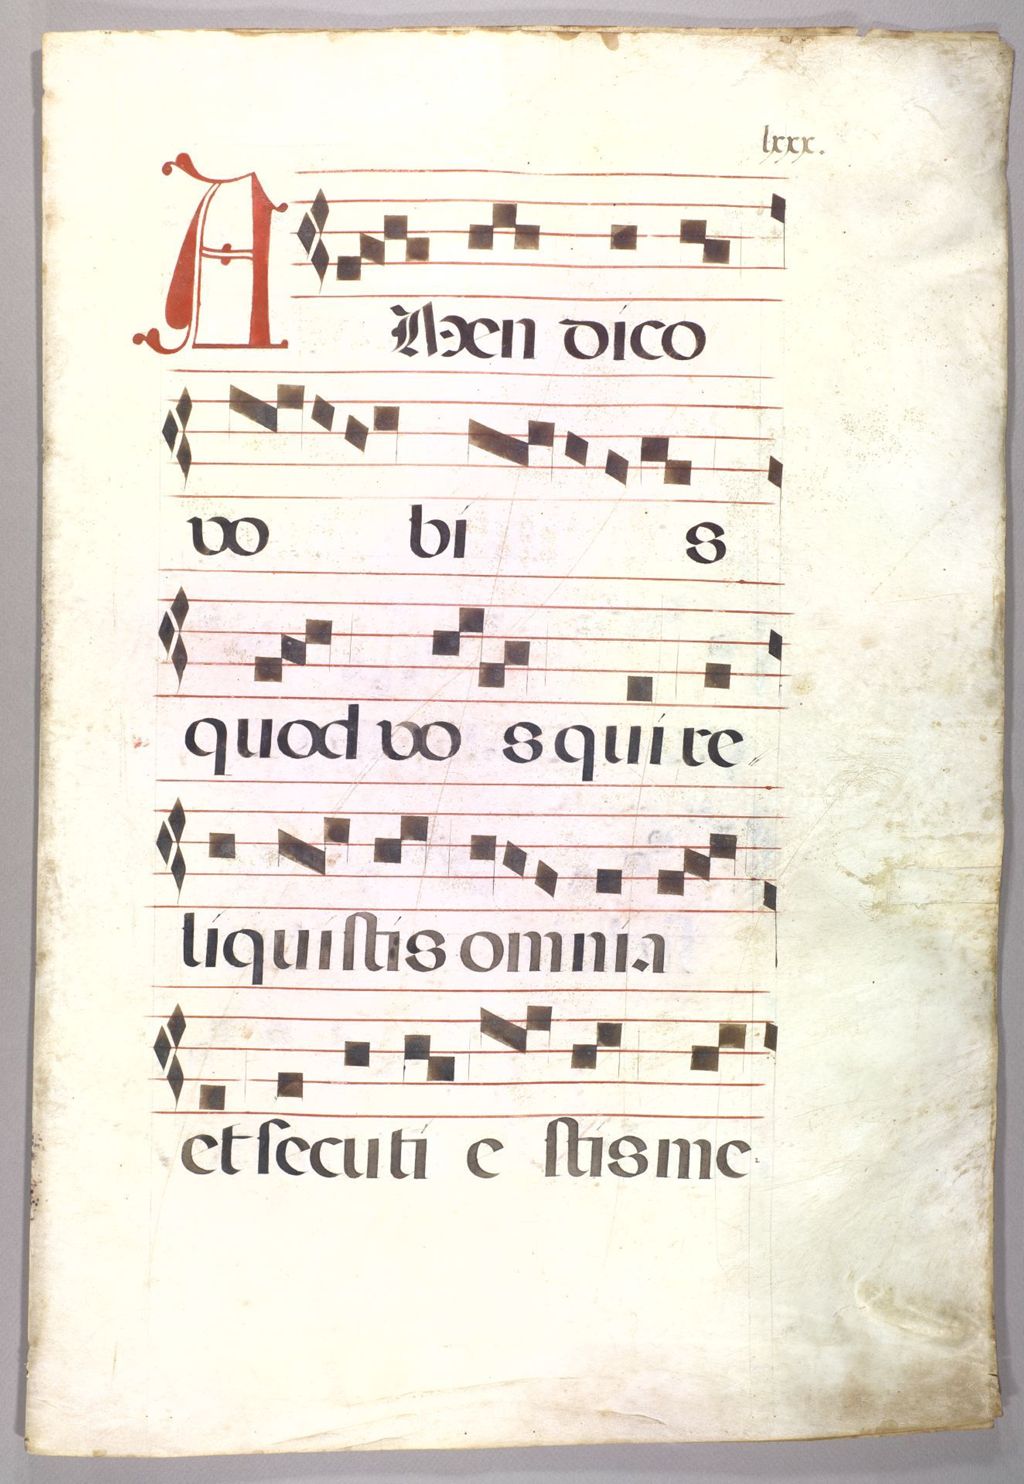 lxxx.
AMen dico
vo bi s
quod vo s qui re
liquistis omnia
et secuti e stis me